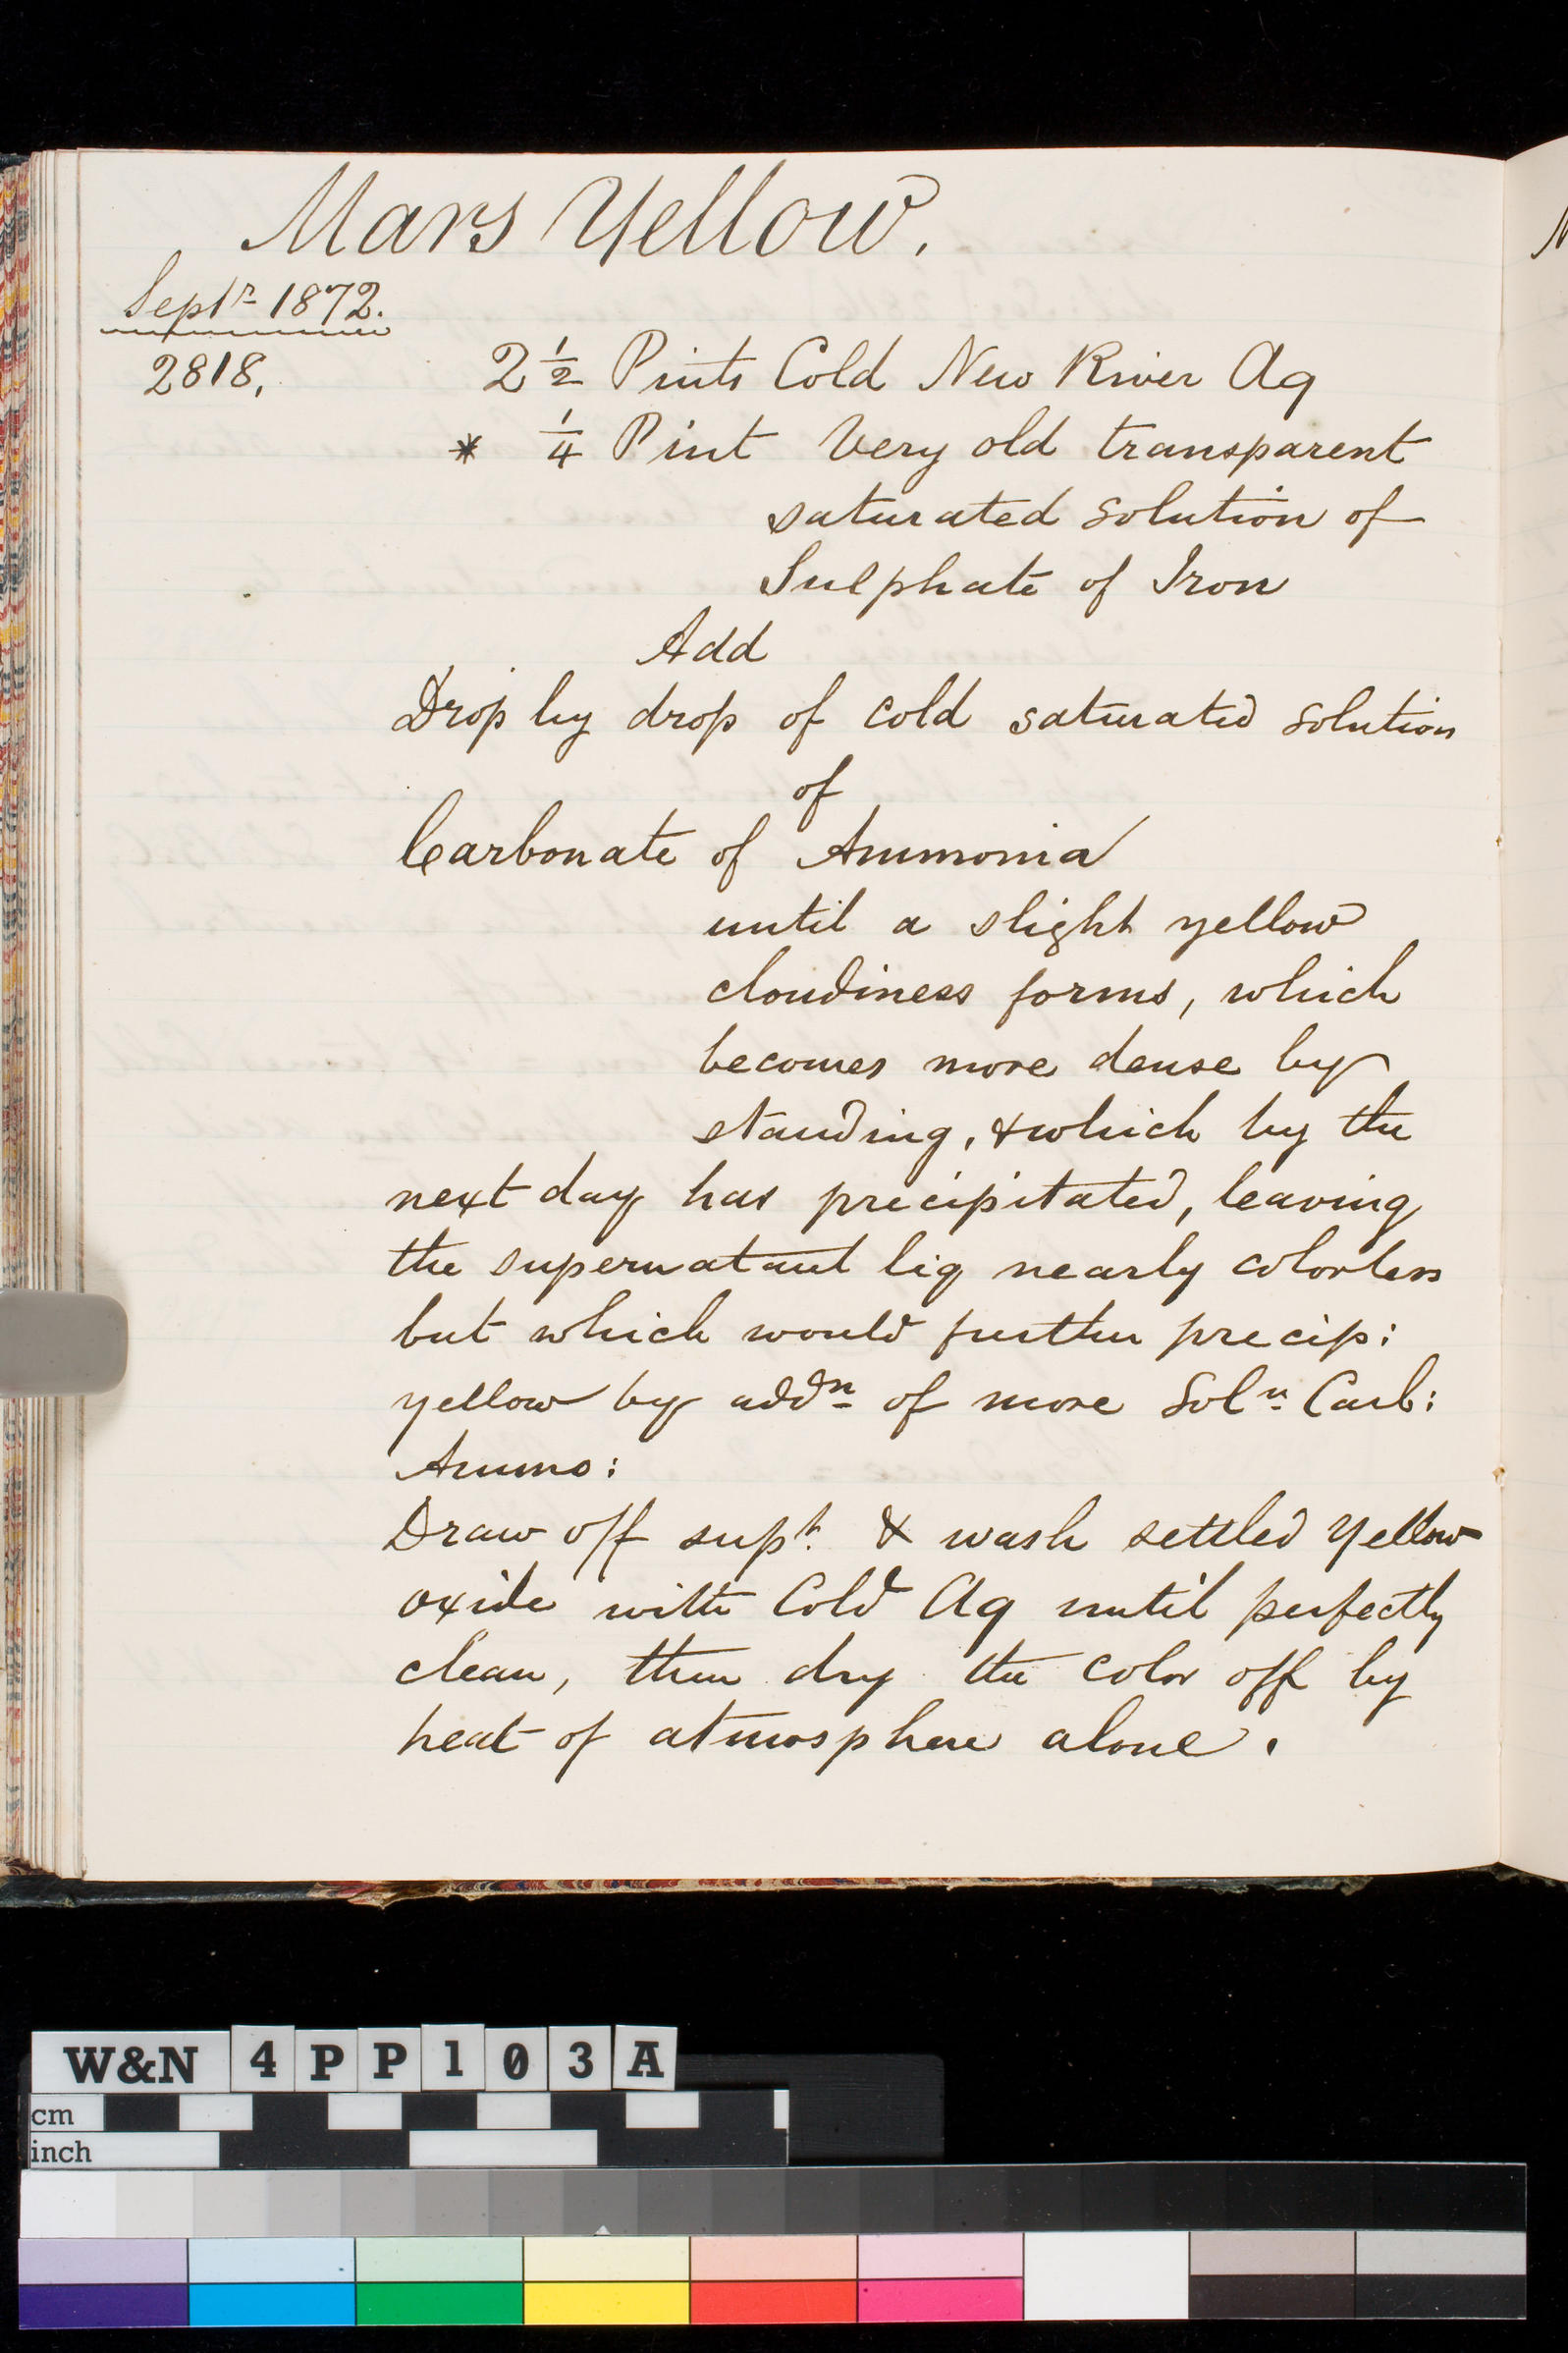 Mars Yellow.
Septr 1872.
2818,
2 1/2 Pints Cold New River Aq
* 1/4 Pint Very old transparent
saturated solution of
Sulphate of Iron
Add
Drop by drop of cold saturated solution
of
Carbonate of Ammonia
until a slight yellow
cloudiness forms, which
becomes more dense by
standing, & which by the
next day has precipitated, leaving
the supernatant liq nearly colorless
but which would further precip:
yellow by addn of more Soln Carb:
Ammo:
Draw off supt. & wash settled yellow
oxide with Cold Aq until perfectly
clean, then dry the color off by
heat of atmosphere alone.
W&N 4PP103A
cm
inch